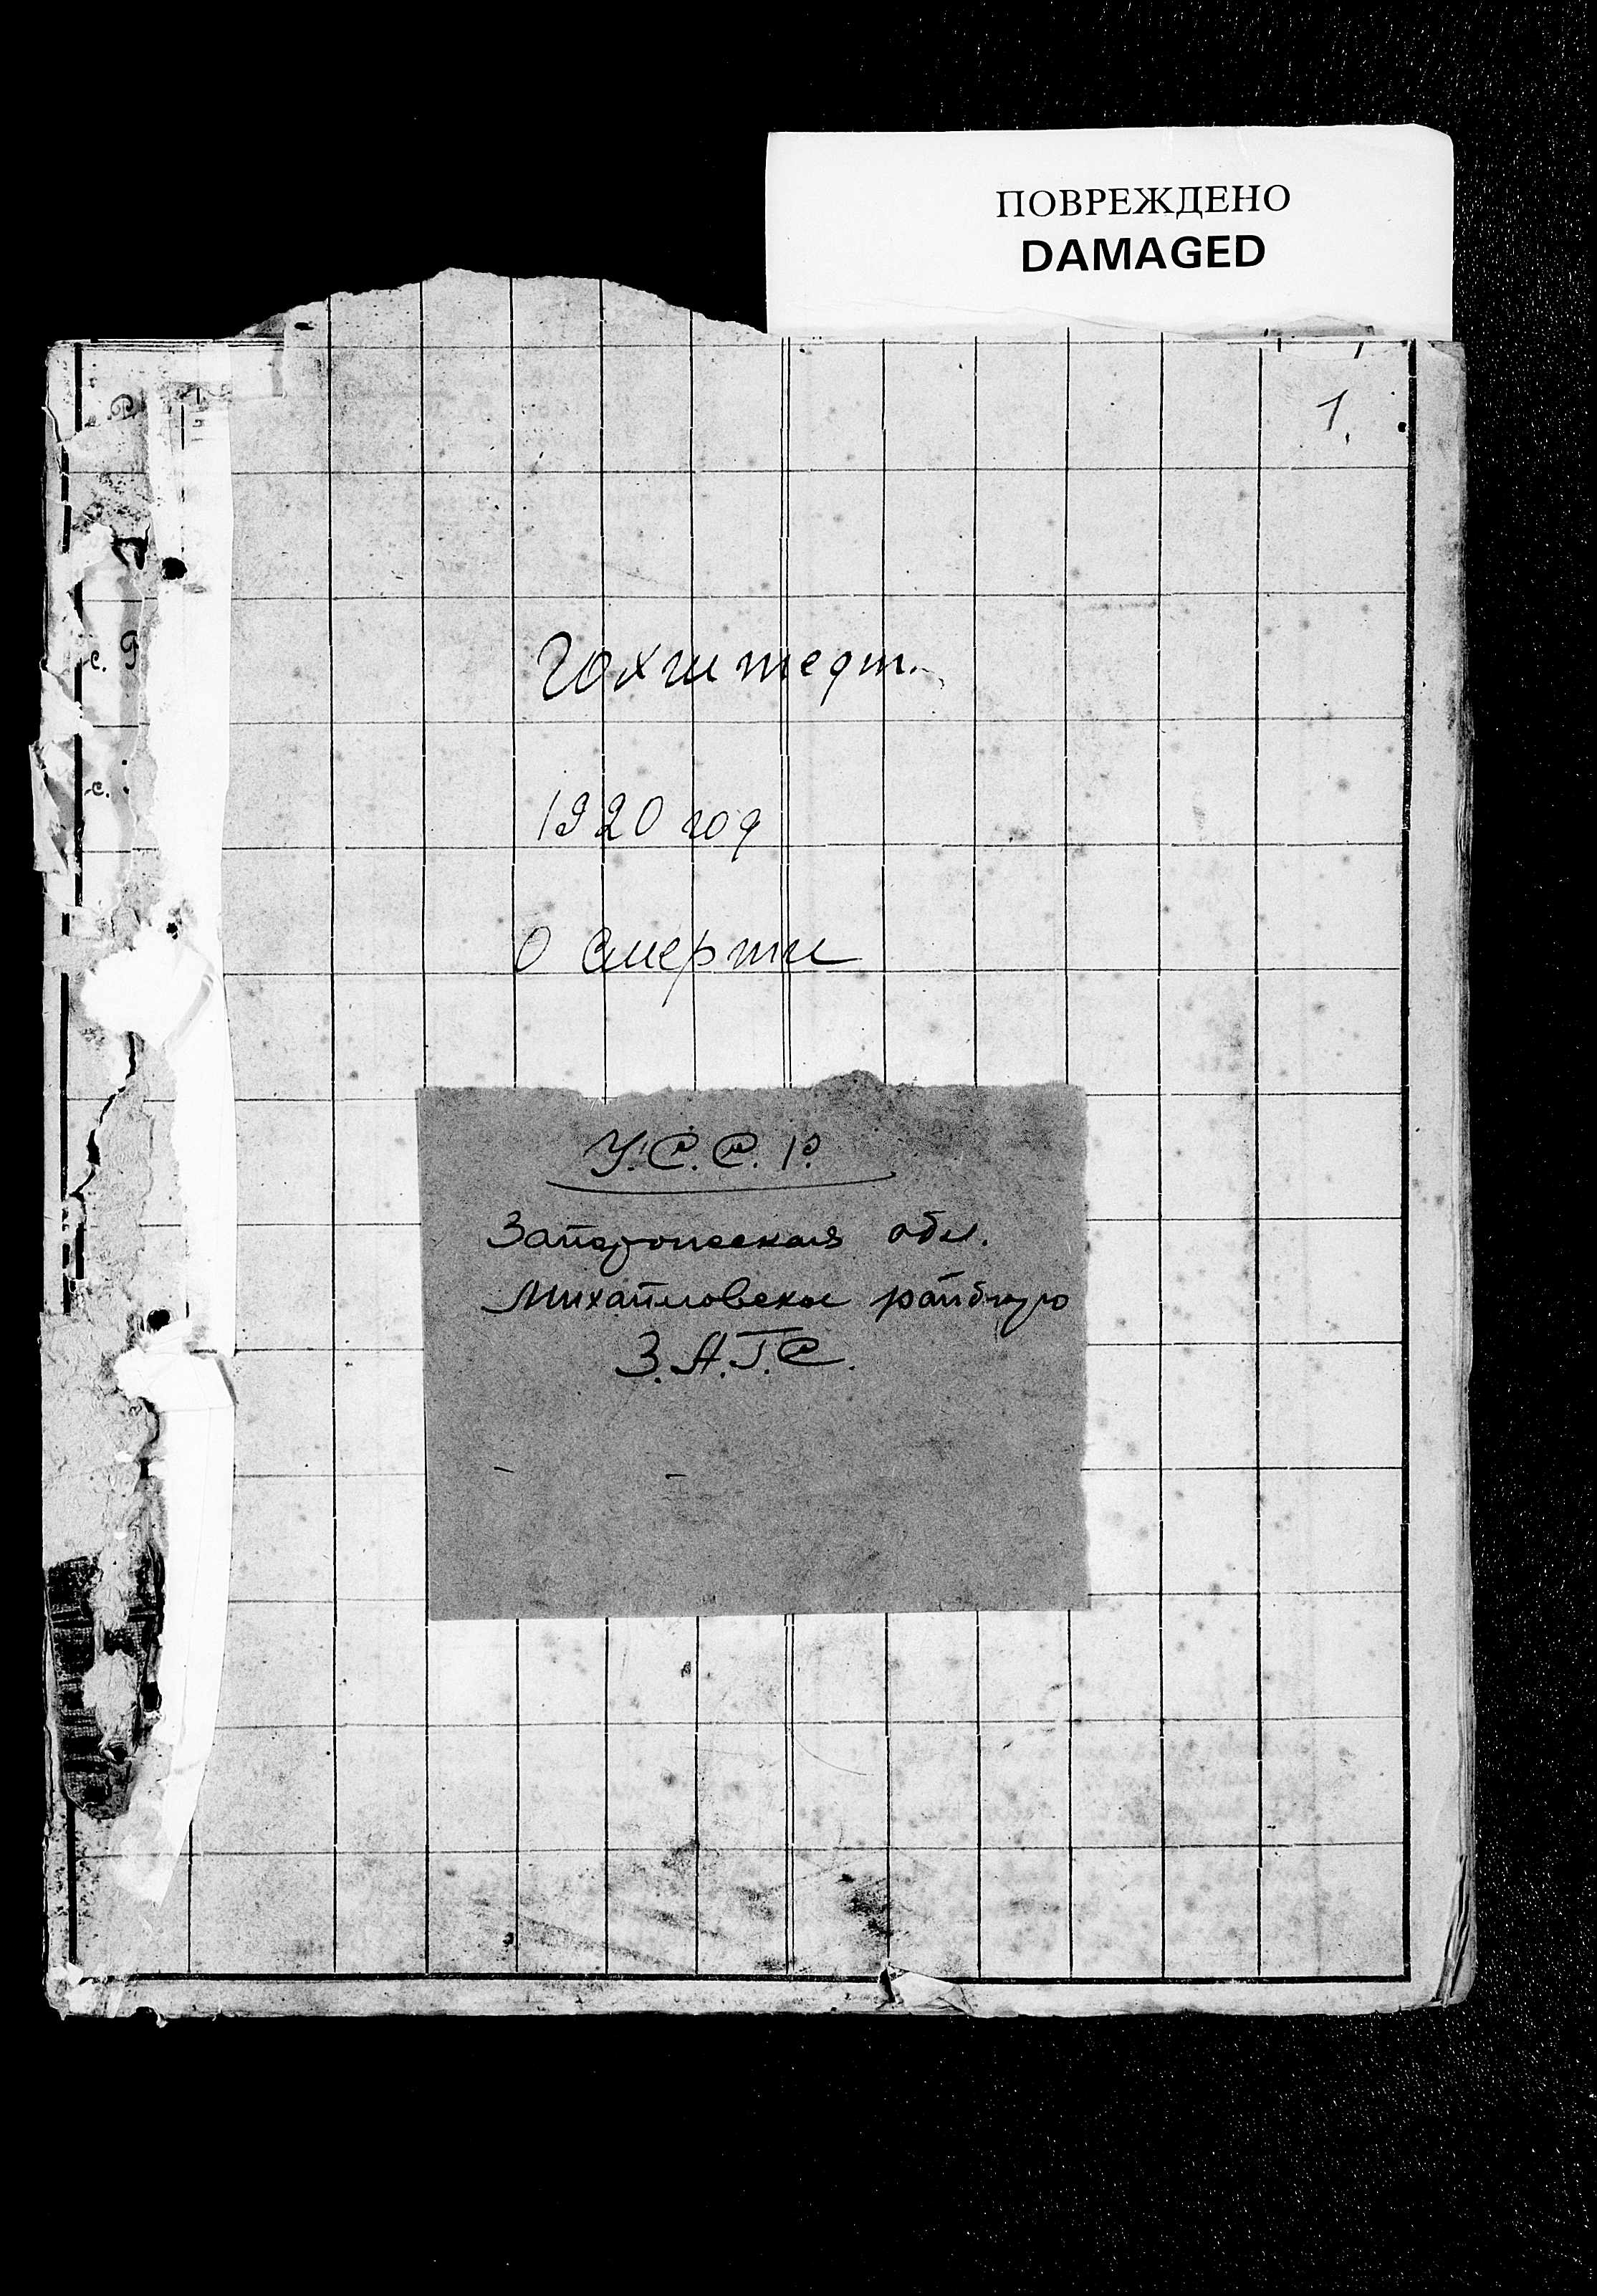 ПОВРЕЖДЕНО
DAMAGED
1.
с.
с.
Гохштедт.
1920 год
О смерти
У.С.С.Р.
Запорожская обл.
Михайловское райбюро
З.А.Г.С.